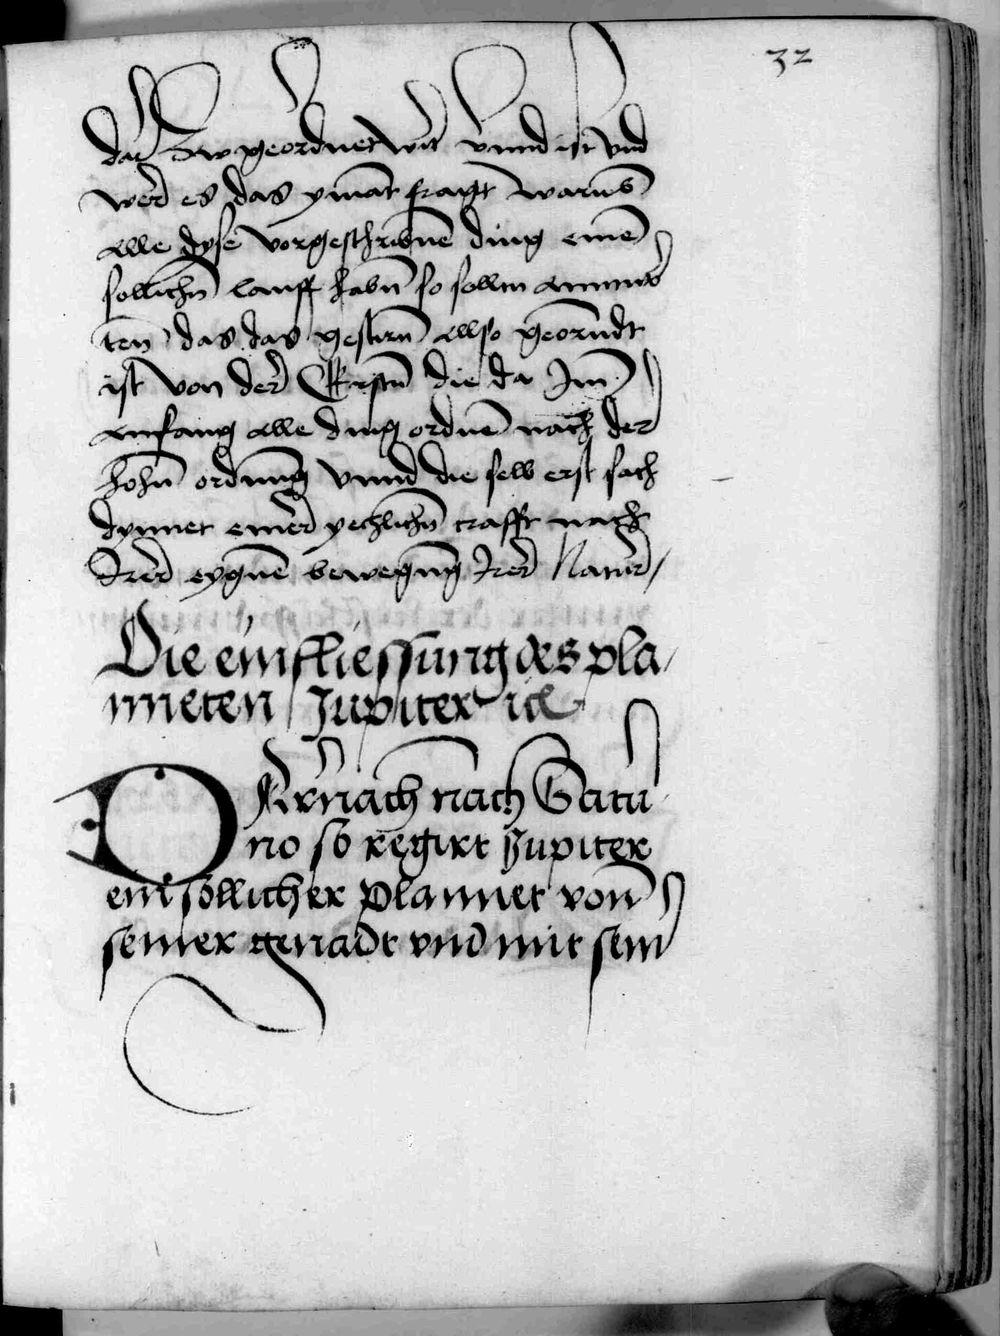 32
dar Zw geordnet wirt vnnd ist vnd
werd es das ymāt fragt warūb
alle dyse vorgeschribnē ding einē
sollichn̄ lauff habn̄ so solln antwur
ten das das gestirn allso geornndt
ist von der̄ Erstn̄ die da Jm̄
anfang alle ding ordnē nach der
hohn̄ ordnung vnnd die selb erst sach
dynnet einer̄ yechlichn̄ crafft nach
Jrer̄ eygnē bewegung Jrer̄ Natur̄ /
Die einfliessung des pla /
nneten Jupiter ic
Darnach nach Satu
no so regirt Jupiter
ein söllicher plannet von̄
seiner genadt vnd mit sein